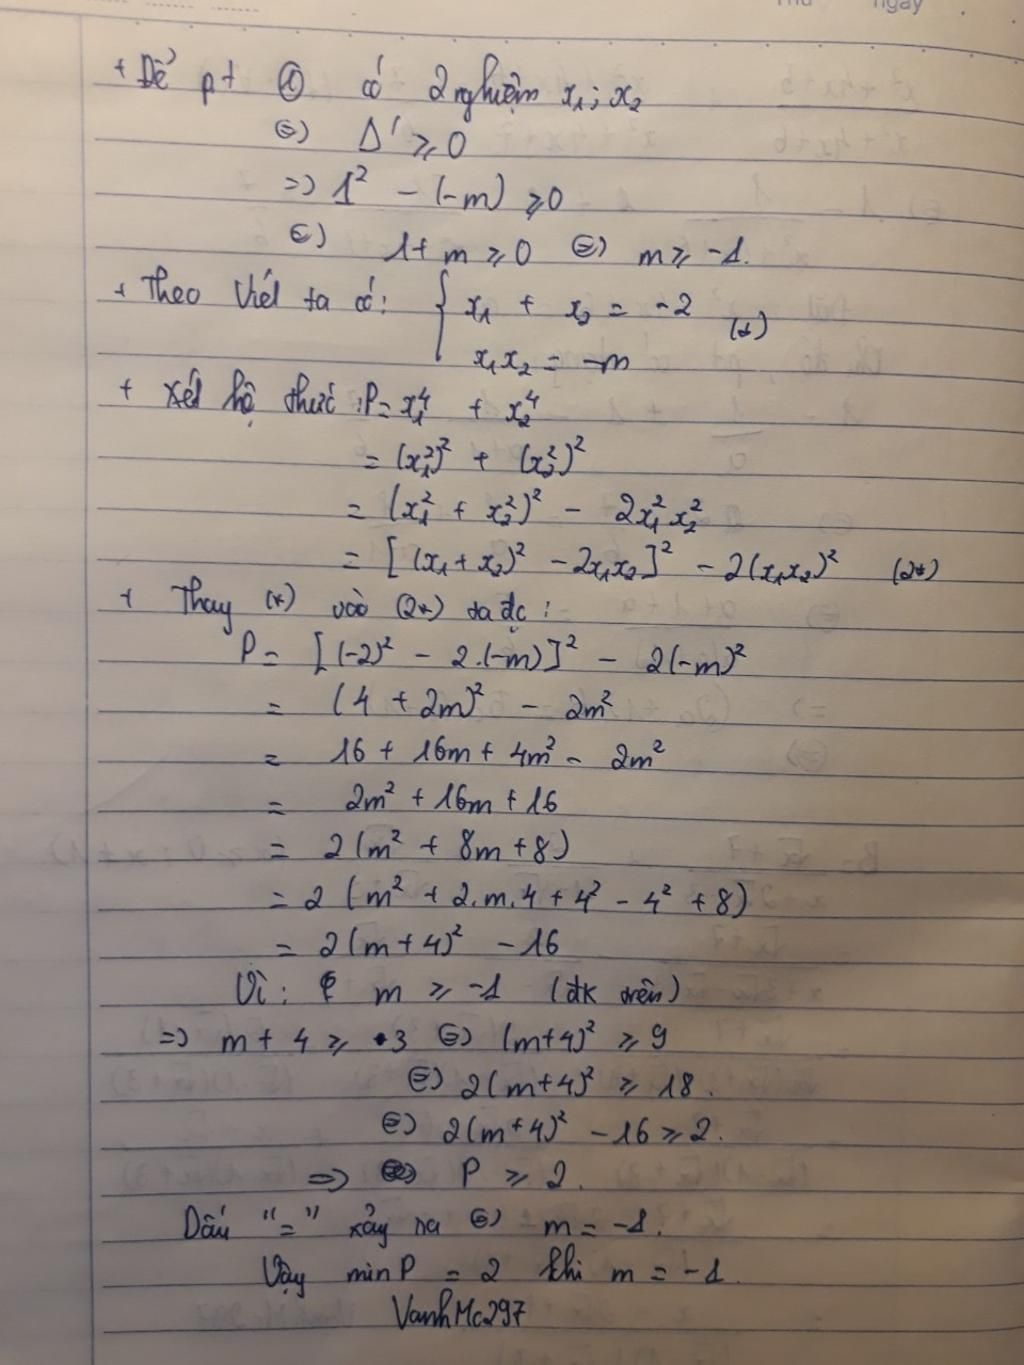 + Để pt ① có 2 nghiệm x₁; x₂
⇔ Δ' ≥ 0
=> 1² - (-m) ≥ 0
⇔ 1 + m ≥ 0 ⇔ m ≥ -1.
+ Theo Viét ta có: { x₁ + x₂ = -2 (*)
x₁x₂ = -m
+ Xét hệ thức : P = x₁⁴ + x₂⁴
= (x₁²)² + (x₂²)²
= (x₁² + x₂²)² - 2x₁²x₂²
= [(x₁+x₂)² - 2x₁x₂]² - 2(x₁x₂)² (2*)
+ Thay (*) vào (2*) ta đc :
P = [(-2)² - 2.(-m)]² - 2(-m)²
= (4 + 2m)² - 2m²
= 16 + 16m + 4m² - 2m²
= 2m² + 16m + 16
= 2(m² + 8m + 8)
= 2 (m² + 2.m.4 + 4² - 4² + 8)
= 2(m+4)² - 16
Vì : m ≥ -1 (đk trên)
=> m + 4 ≥ 3 ⇔ (m+4)² ≥ 9
⇔ 2(m+4)² ≥ 18.
⇔ 2(m+4)² - 16 ≥ 2.
=> P ≥ 2.
Dấu "=" xảy ra ⇔ m = -1.
Vậy min P = 2 khi m = -1.
VanhMc297